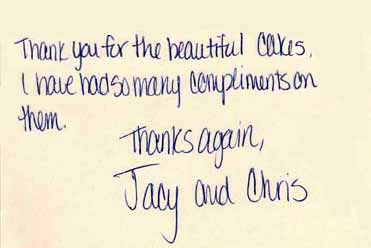 Thank you for the beautiful cakes.
I have had so many compliments on
them.
Thanks again,
Jacy and Chris